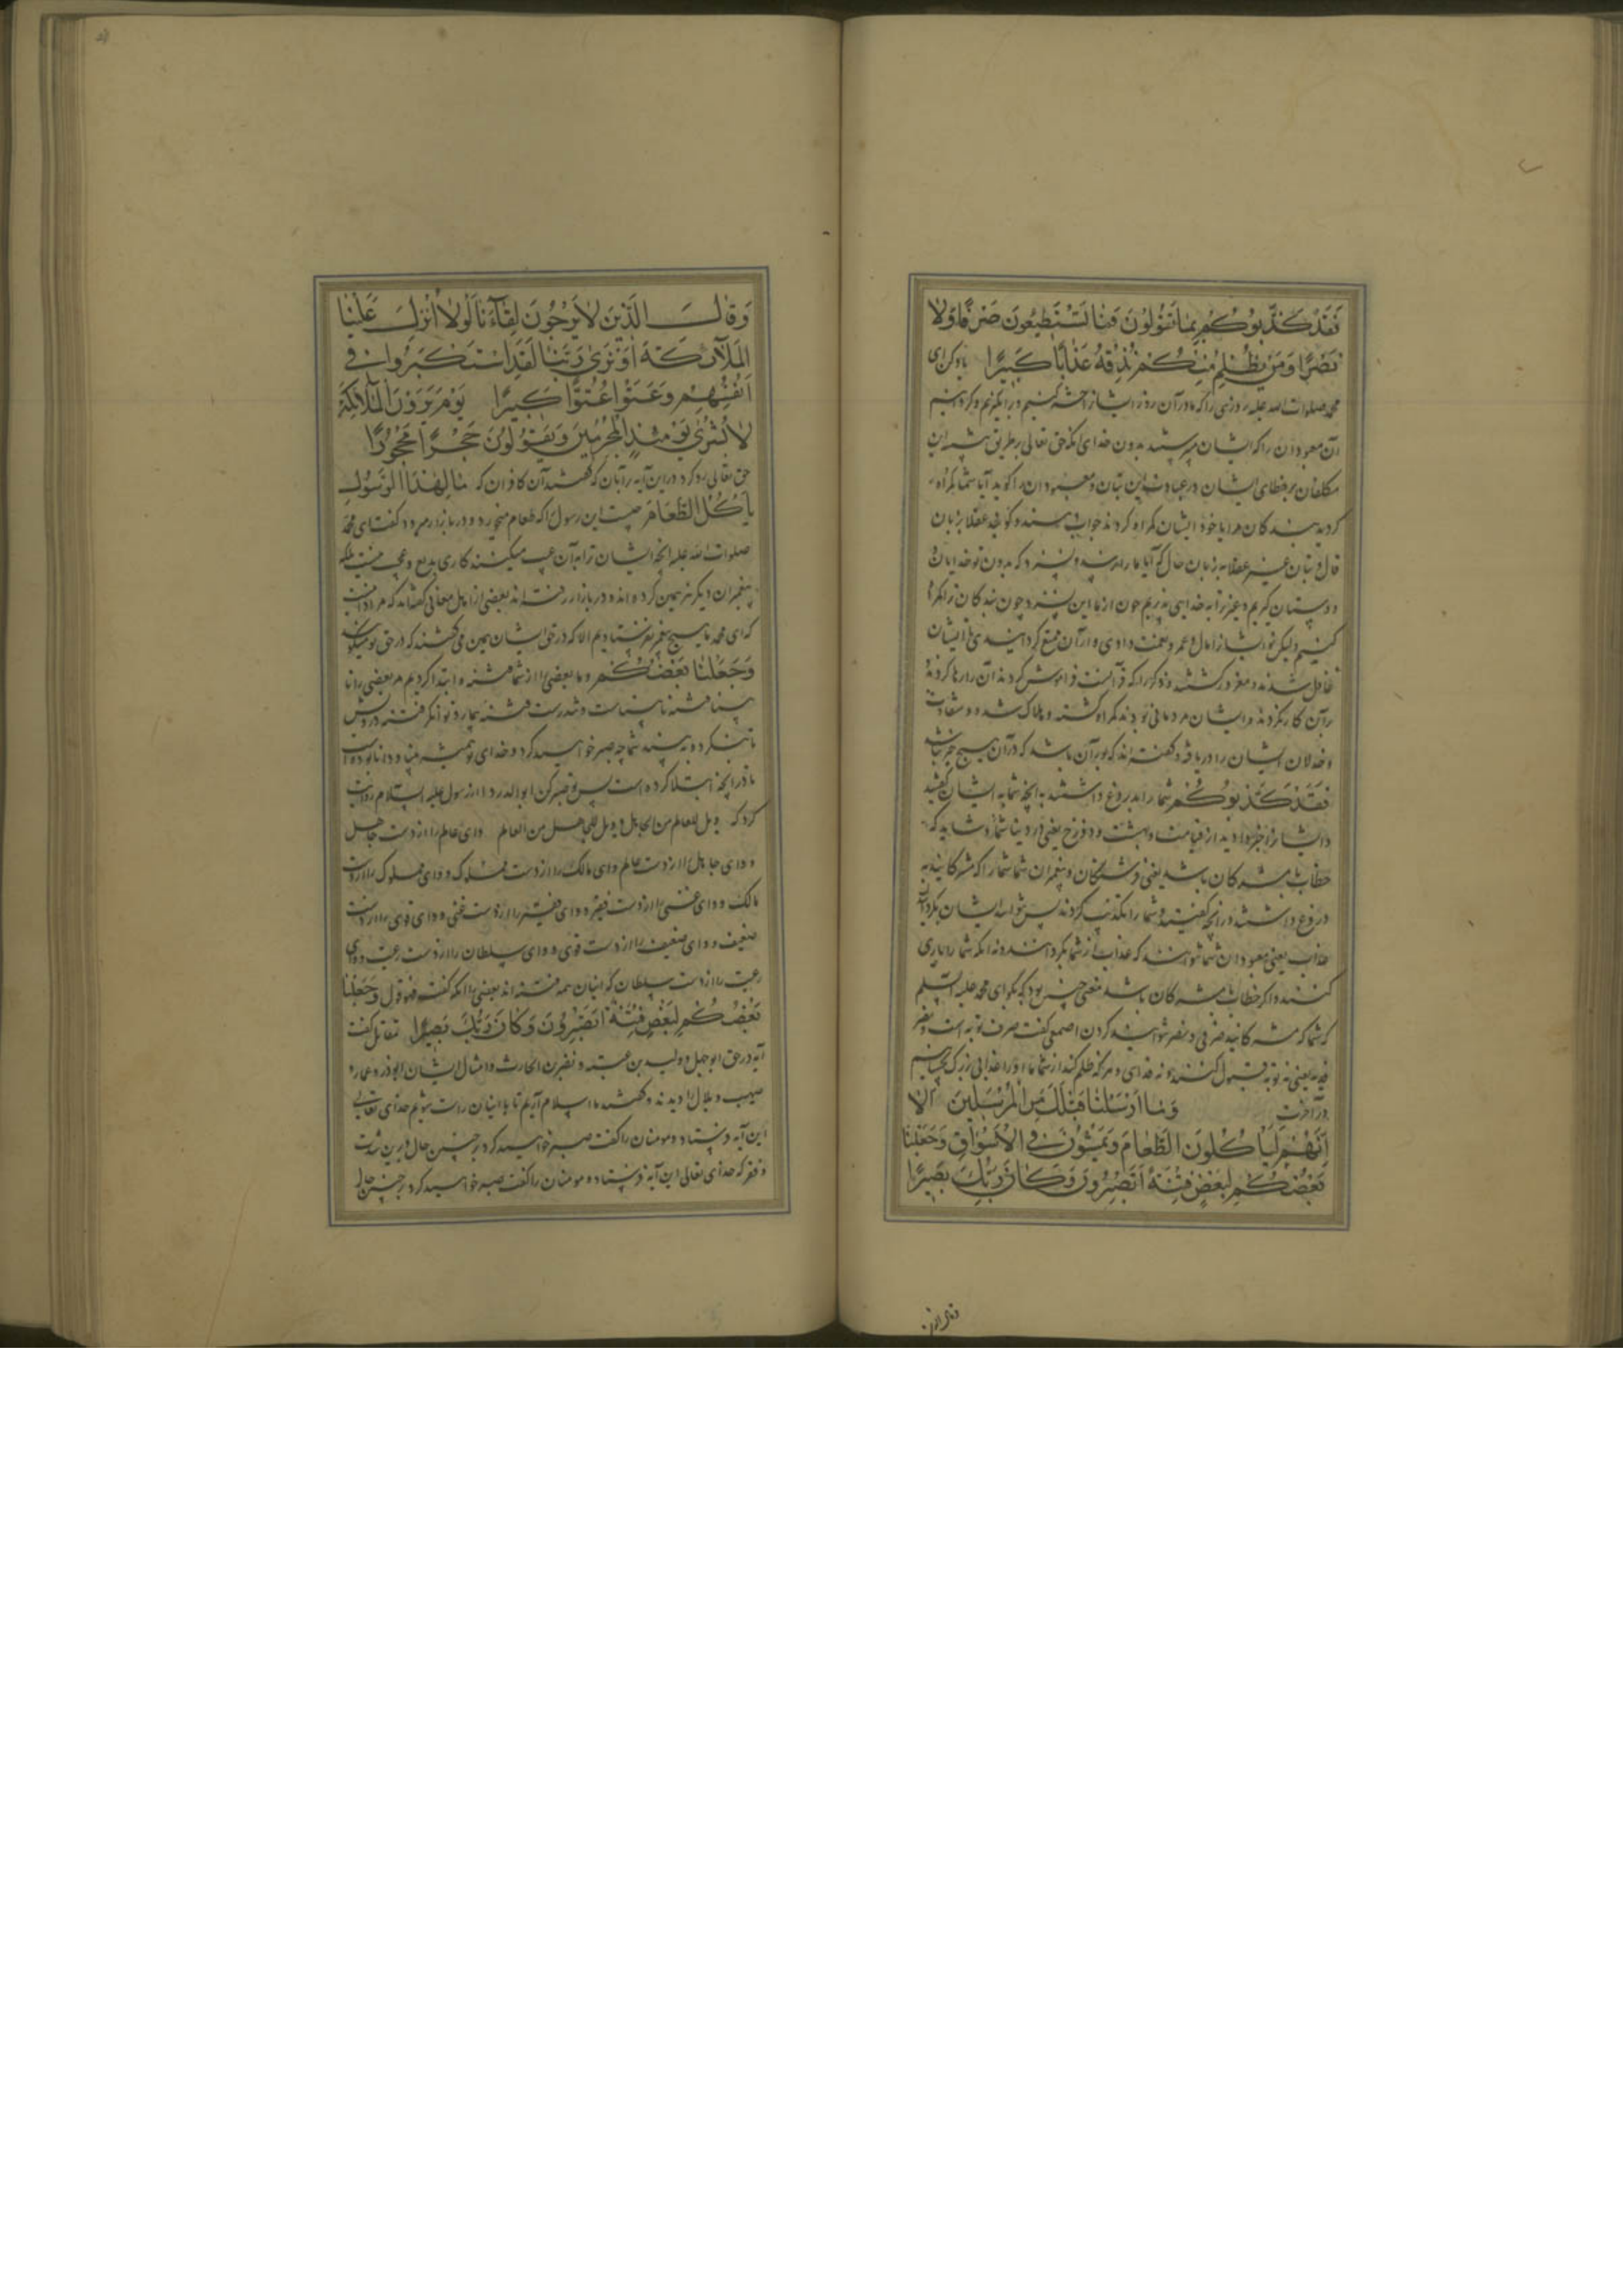 فَقَدْ كَذَّبُوكُمْ بِمَا تَقُولُونَ فَمَا تَسْتَطِيعُونَ صَرْفًا وَلَا
نَصْرًا وَمَنْ يَظْلِمْ مِنْكُمْ نُذِقْهُ عَذَابًا كَبِيرًا یاد کن ای
محمد صلوات الله علیه روزی را که ما در آن روز ایشانرا حشر کنیم و برانگیزیم و گردانیم
آن معبودان را که ایشان می پرستند بدون خدای آنگه حق تعالی بر طریق
مکلفان بر خطای ایشان در عبادت این بتان و معبودان را گوید آیا شما گمراه
کردید بندگان مرا یا خود ایشان گمراه گردند جواب دهند و گویند عقلا بزبان
قال و بتان غیر عقلا بزبان حال که آیا ما را رسد و سزد که بدون تو خدایان و
دوستان گیریم و غیر ترا به خدایی پذیریم چون از ما این نسزد چون بندگان ترا گمراه
کنیم ولیکن تو ایشانرا مال و عمر و نعمت دادی و از آن ممتع گردانیدی تا ایشان
غافل شدند و مغرور گشتند و ذکر را که قرآنست فراموش کردند آن را رها کردند
بر آن کار نکردند و ایشان مردمانی بودند گمراه گشته و هلاک شده و شقاوت
و خذلان ایشان را دریافته و گفته اند که بور آن باشد که در آن هیچ خیر نباشد
فَقَدْ كَذَّبُوكُمْ شما را بدروغ داشتند به آنچه شما به ایشان گفتید
و ایشانرا خبر دادید از قیامت و بهشت و دوزخ یعنی در دنیا شما و شاید که
خطاب مشرکان باشد یعنی فرشتگان و پیغمبران شما شما را که مشرکانید به
دروغ داشتند در آنچه گفتید و شما را تکذیب کردند پس نتوانند ایشان بگردانیدن
عذاب یعنی معبودان شما نتوانند که عذاب از شما بگردانند و نه آنکه شما را یاری
کنند و اگر خطاب مشرکان باشد معنی چنین بود که بگو ای محمد علیه السلم
که شما که مشرکانید صرفی و نصر نتوانید کردن اصمعی گفت صرف توبه است و نصر
فدیه یعنی نه توبه قبول کنند و نه فدای و هر که ظلم کند از شما ما او را عذابی بزرگ بچشانیم
در آخرت وَمَا أَرْسَلْنَا قَبْلَكَ مِنَ الْمُرْسَلِينَ إِلَّا
إِنَّهُمْ لَيَأْكُلُونَ الطَّعَامَ وَيَمْشُونَ فِي الْأَسْوَاقِ وَجَعَلْنَا
بَعْضَكُمْ لِبَعْضٍ فِتْنَةً أَتَصْبِرُونَ وَكَانَ رَبُّكَ بَصِيرًا
وقال الذین
وَقَالَ الَّذِينَ لَا يَرْجُونَ لِقَاءَنَا لَوْلَا أُنْزِلَ عَلَيْنَا
الْمَلَائِكَةُ أَوْ نَرَى رَبَّنَا لَقَدِ اسْتَكْبَرُوا فِي
أَنْفُسِهِمْ وَعَتَوْا عُتُوًّا كَبِيرًا يَوْمَ يَرَوْنَ الْمَلَائِكَةَ
لَا بُشْرَى يَوْمَئِذٍ لِلْمُجْرِمِينَ وَيَقُولُونَ حِجْرًا مَحْجُورًا
حق تعالی رد کرد در این آیه بر آنان که گفتند آن کافران که مَا لِهَذَا الرَّسُولِ
يَأْكُلُ الطَّعَامَ چیست این رسول را که طعام میخورد و در بازار میرود گفت ای محمد
صلوات الله علیه آنچه ایشان ترا به آن عیب میکنند کاری بدیع و عجب نیست بلکه
پیغمبران دیگر نیز همین کرده اند و در بازار رفته اند بعضی از اهل معانی گفته اند که مراد آنست
که ای محمد ما هیچ پیغمبر نفرستادیم الا که در حق ایشان همین می گفتند که در حق تو میگویند
وَجَعَلْنَا بَعْضَكُمْ و ما بعضی را از شما فتنه و ابتلا کردیم مر بعضی را نا
بینا فتنه بیناست و تندرست فتنه بیمار و توانگر فتنه درویش
تا بنگرد و ببیند شما چه صبر خواهید کرد و خدای تو همیشه بینا و دانا بوده است
ما ترا بآنچه ابتلا کرده است پس تو صبر کن ابو الدردا از رسول علیه السلام روایت
کرد که ویل للعالم من الجاهل و ویل للجاهل من العالم وای عالم را از دست جاهل
و وای جاهل را از دست عالم وای مالک را از دست مملوک و وای مملوک را از دست
مالک و وای غنی را از دست فقیر و وای فقیر را از دست غنی و وای قوی را از دست
ضعیف و وای ضعیف را از دست قوی و وای سلطان را از دست رعیت و وای
رعیت را از دست سلطان که اینان همه فتنه اند بعضی را آنکه گفت فهو قول وَجَعَلْنَا
بَعْضَكُمْ لِبَعْضٍ فِتْنَةً أَتَصْبِرُونَ وَكَانَ رَبُّكَ بَصِيرًا مقاتل گفت
آیه در حق ابو جهل و ولید بن عتبه و نضر بن الحارث و امثال ایشان ابوذر و عمار و
صهیب و بلال را دیدند و گفتند ما اسلام آریم تا با اینان راست شویم خدای تعالی
این آیه فرستاد و مومنان را گفت صبر خواهید کرد بر چنین حال و برین شدت
و فقر که خدای تعالی این آیه فرستاد و مومنان را گفت صبر خواهید کرد بر چنین حال